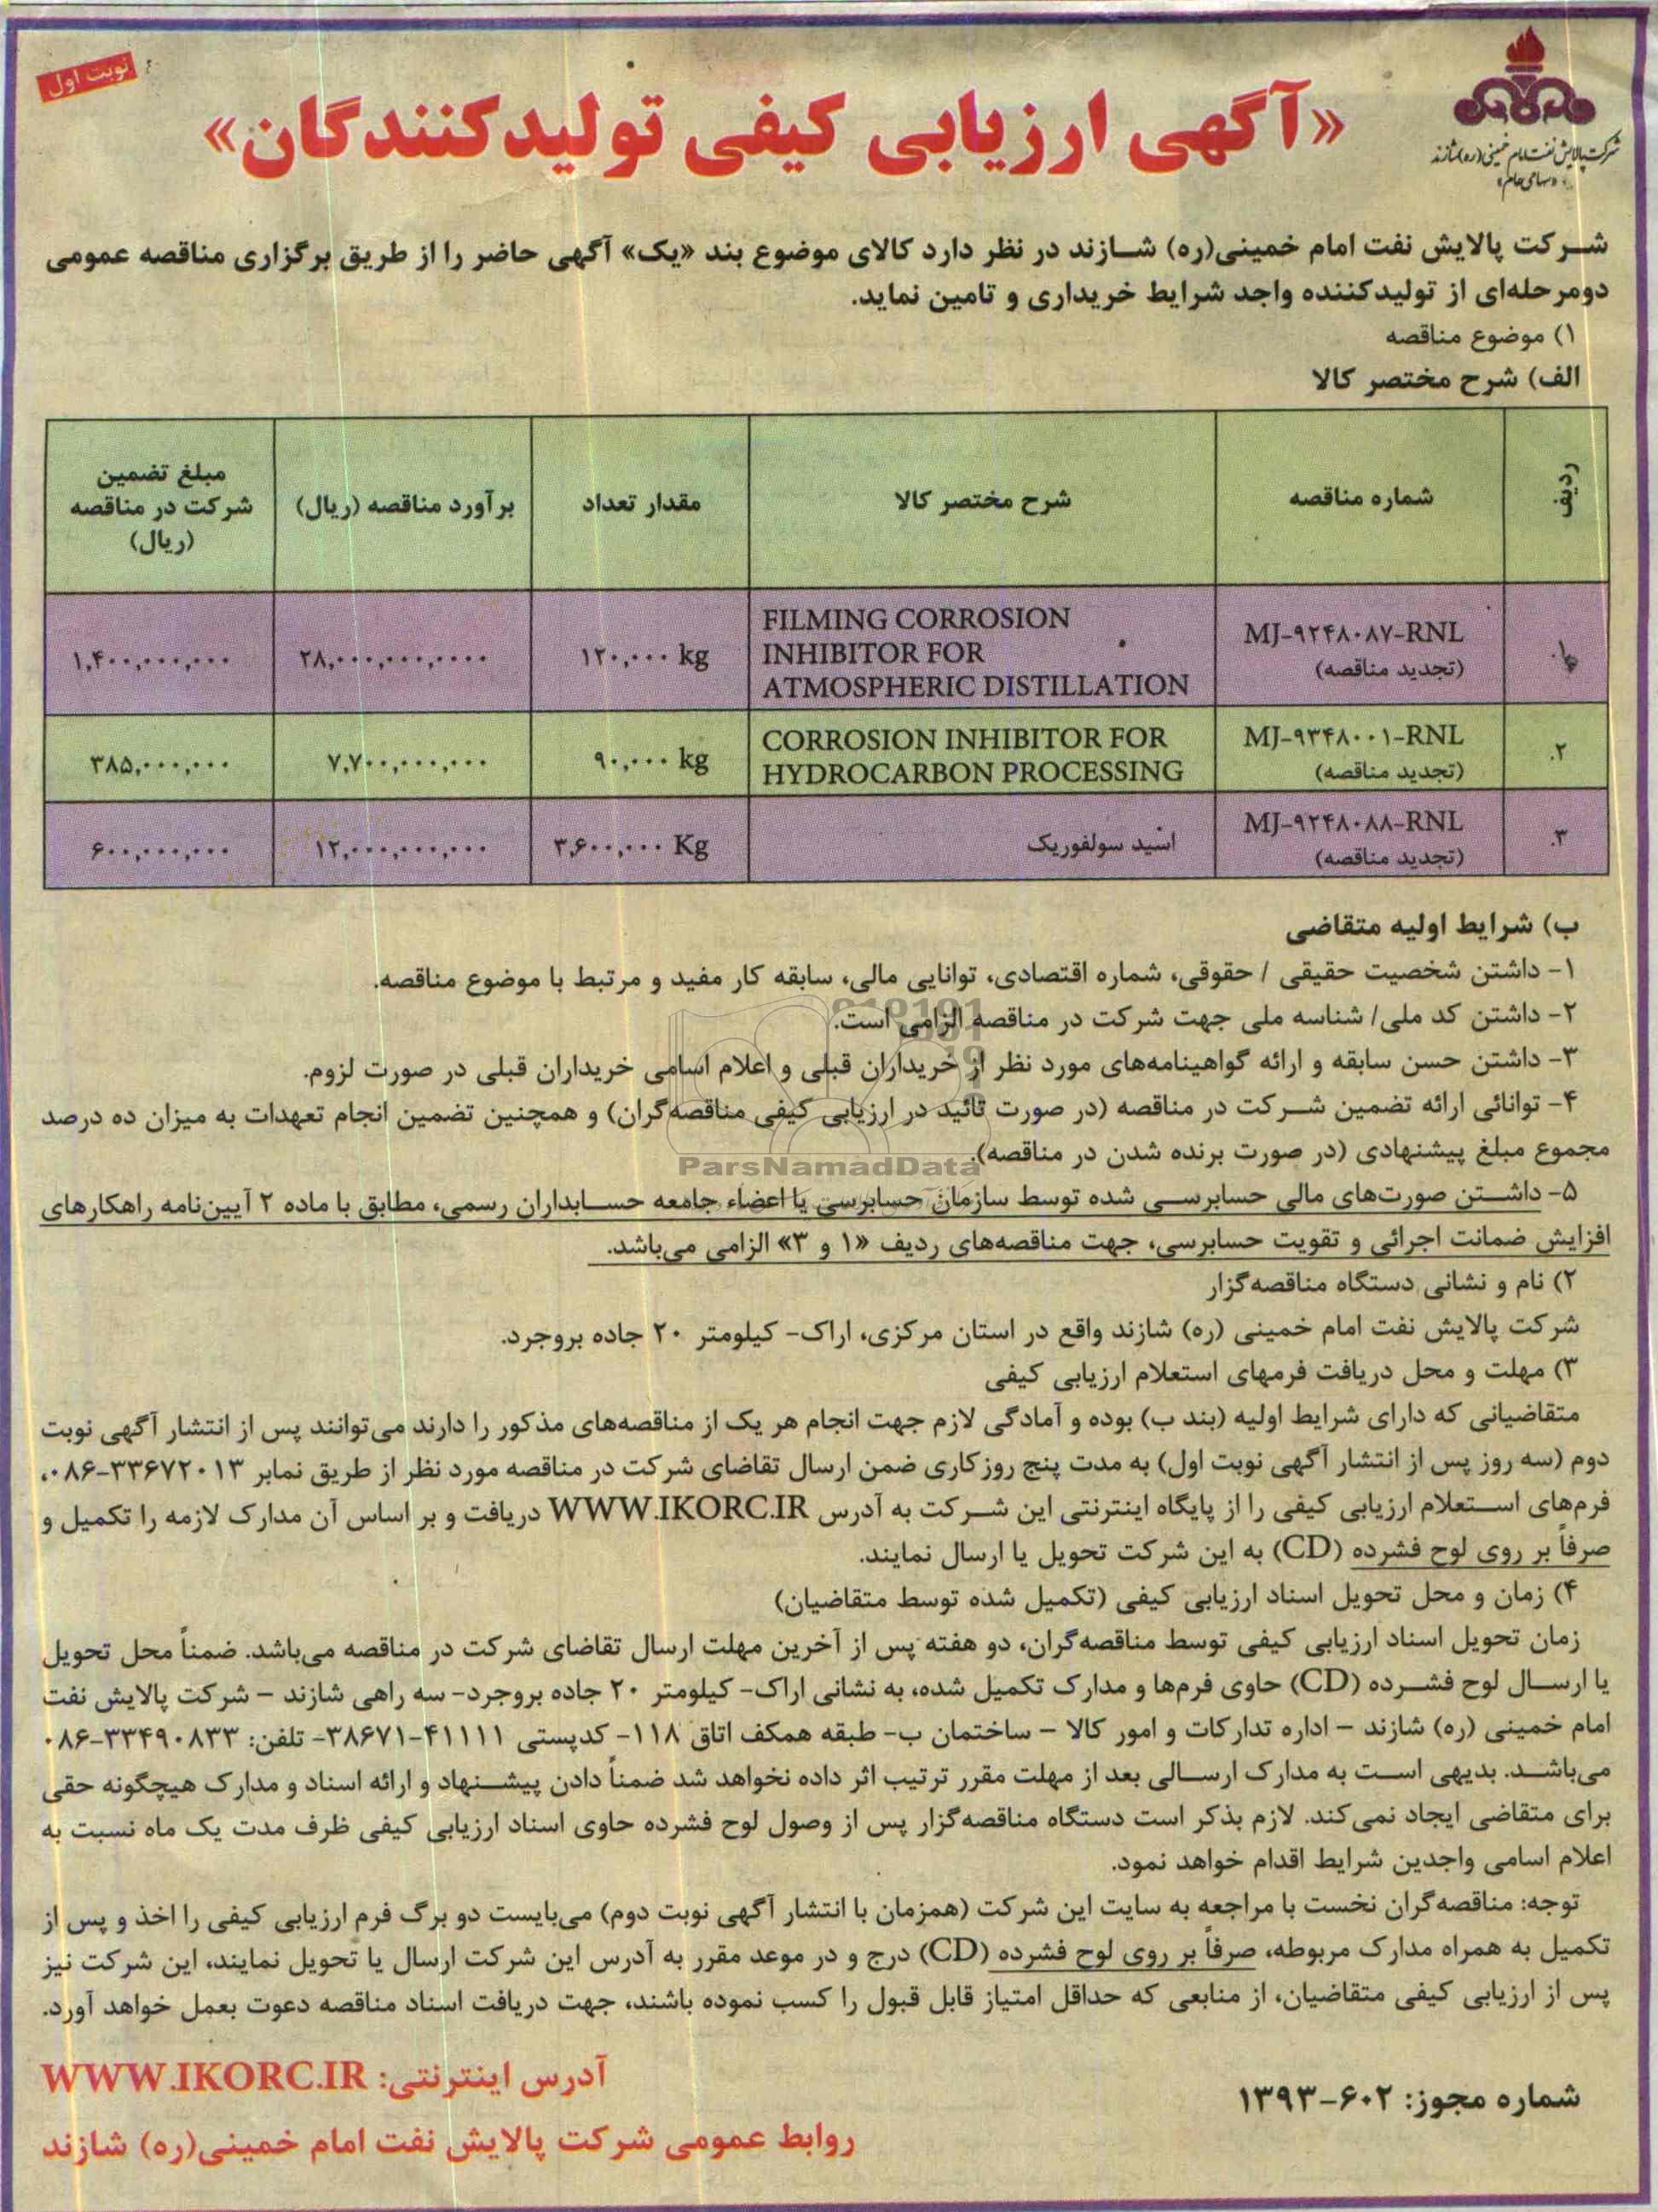 نوبت اول
شرکت پالایش نفت امام خمینی(ره) شازند
«سهامی عام»
«آگهی ارزیابی کیفی تولیدکنندگان»
شرکت پالایش نفت امام خمینی(ره) شازند در نظر دارد کالای موضوع بند «یک» آگهی حاضر را از طریق برگزاری مناقصه عمومی
دومرحله‌ای از تولیدکننده واجد شرایط خریداری و تامین نماید.
۱) موضوع مناقصه
الف) شرح مختصر کالا
ردیف شماره مناقصه شرح مختصر کالا مقدار تعداد برآورد مناقصه (ریال) مبلغ تضمین شرکت در مناقصه (ریال)
۱. MJ-۹۲۴۸۰۸۷-RNL (تجدید مناقصه) FILMING CORROSION INHIBITOR FOR ATMOSPHERIC DISTILLATION ۱۲۰,۰۰۰ kg ۲۸,۰۰۰,۰۰۰,۰۰۰۰ ۱,۴۰۰,۰۰۰,۰۰۰
۲. MJ-۹۳۴۸۰۰۱-RNL (تجدید مناقصه) CORROSION INHIBITOR FOR HYDROCARBON PROCESSING ۹۰,۰۰۰ kg ۷,۷۰۰,۰۰۰,۰۰۰ ۳۸۵,۰۰۰,۰۰۰
۳. MJ-۹۲۴۸۰۸۸-RNL (تجدید مناقصه) اسید سولفوریک ۳,۶۰۰,۰۰۰ Kg ۱۲,۰۰۰,۰۰۰,۰۰۰ ۶۰۰,۰۰۰,۰۰۰
ب) شرایط اولیه متقاضی
۱- داشتن شخصیت حقیقی / حقوقی، شماره اقتصادی، توانایی مالی، سابقه کار مفید و مرتبط با موضوع مناقصه.
۲- داشتن کد ملی/ شناسه ملی جهت شرکت در مناقصه الزامی است.
۳- داشتن حسن سابقه و ارائه گواهینامه‌های مورد نظر از خریداران قبلی و اعلام اسامی خریداران قبلی در صورت لزوم.
۴- توانائی ارائه تضمین شرکت در مناقصه (در صورت تائید در ارزیابی کیفی مناقصه‌گران) و همچنین تضمین انجام تعهدات به میزان ده درصد
مجموع مبلغ پیشنهادی (در صورت برنده شدن در مناقصه).
ParsNamadData
۵- داشتن صورت‌های مالی حسابرسی شده توسط سازمان حسابرسی یا اعضاء جامعه حسابداران رسمی، مطابق با ماده ۲ آیین‌نامه راهکارهای
افزایش ضمانت اجرائی و تقویت حسابرسی، جهت مناقصه‌های ردیف «۱ و ۳» الزامی می‌باشد.
۲) نام و نشانی دستگاه مناقصه‌گزار
شرکت پالایش نفت امام خمینی (ره) شازند واقع در استان مرکزی، اراک- کیلومتر ۲۰ جاده بروجرد.
۳) مهلت و محل دریافت فرمهای استعلام ارزیابی کیفی
متقاضیانی که دارای شرایط اولیه (بند ب) بوده و آمادگی لازم جهت انجام هر یک از مناقصه‌های مذکور را دارند می‌توانند پس از انتشار آگهی نوبت
دوم (سه روز پس از انتشار آگهی نوبت اول) به مدت پنج روزکاری ضمن ارسال تقاضای شرکت در مناقصه مورد نظر از طریق نمابر ۳۳۶۷۲۰۱۳-۰۸۶،
فرم‌های استعلام ارزیابی کیفی را از پایگاه اینترنتی این شرکت به آدرس WWW.IKORC.IR دریافت و بر اساس آن مدارک لازمه را تکمیل و
صرفاً بر روی لوح فشرده (CD) به این شرکت تحویل یا ارسال نمایند.
۴) زمان و محل تحویل اسناد ارزیابی کیفی (تکمیل شده توسط متقاضیان)
زمان تحویل اسناد ارزیابی کیفی توسط مناقصه‌گران، دو هفته پس از آخرین مهلت ارسال تقاضای شرکت در مناقصه می‌باشد. ضمناً محل تحویل
یا ارسال لوح فشرده (CD) حاوی فرم‌ها و مدارک تکمیل شده، به نشانی اراک- کیلومتر ۲۰ جاده بروجرد- سه راهی شازند – شرکت پالایش نفت
امام خمینی (ره) شازند – اداره تدارکات و امور کالا – ساختمان ب- طبقه همکف اتاق ۱۱۸- کدپستی ۴۱۱۱۱-۳۸۶۷۱- تلفن: ۳۳۴۹۰۸۳۳-۰۸۶
می‌باشد. بدیهی است به مدارک ارسالی بعد از مهلت مقرر ترتیب اثر داده نخواهد شد ضمناً دادن پیشنهاد و ارائه اسناد و مدارک هیچگونه حقی
برای متقاضی ایجاد نمی‌کند. لازم بذکر است دستگاه مناقصه‌گزار پس از وصول لوح فشرده حاوی اسناد ارزیابی کیفی ظرف مدت یک ماه نسبت به
اعلام اسامی واجدین شرایط اقدام خواهد نمود.
توجه: مناقصه‌گران نخست با مراجعه به سایت این شرکت (همزمان با انتشار آگهی نوبت دوم) می‌بایست دو برگ فرم ارزیابی کیفی را اخذ و پس از
تکمیل به همراه مدارک مربوطه، صرفاً بر روی لوح فشرده (CD) درج و در موعد مقرر به آدرس این شرکت ارسال یا تحویل نمایند، این شرکت نیز
پس از ارزیابی کیفی متقاضیان، از منابعی که حداقل امتیاز قابل قبول را کسب نموده باشند، جهت دریافت اسناد مناقصه دعوت بعمل خواهد آورد.
آدرس اینترنتی: WWW.IKORC.IR
شماره مجوز: ۶۰۲-۱۳۹۳
روابط عمومی شرکت پالایش نفت امام خمینی(ره) شازند